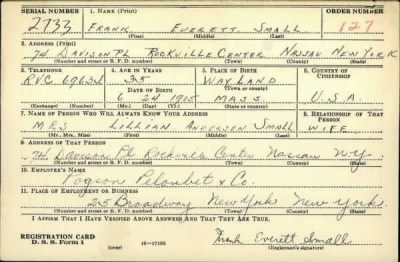 SERIAL NUMBER 1. NAME (Print) ORDER NUMBER
2733 FRANK EVERETT SMALL 127
(First) (Middle) (Last)
2. ADDRESS (Print)
74 DAVISON PL ROCKVILLE CENTER NASSAU NEW YORK
(Number and street or R. F. D. number) (Town) (County) (State)
3. TELEPHONE 4. AGE IN YEARS 5. PLACE OF BIRTH 6. COUNTRY OF CITIZENSHIP
RVC 35 WAYLAND
DATE OF BIRTH (Town or county)
6 24 1905 MASS. U.S.A
(Exchange) (Number) (Mo.) (Day) (Yr.) (State or country)
7. NAME OF PERSON WHO WILL ALWAYS KNOW YOUR ADDRESS 8. RELATIONSHIP OF THAT PERSON
MRS LILLIAN ANDERSEN SMALL WIFE
(Mr., Mrs., Miss) (First) (Middle) (Last)
9. ADDRESS OF THAT PERSON
74 Davison Pl Rockville Center Nassau N.Y.
(Number and street or R. F. D. number) (Town) (County) (State)
10. EMPLOYER'S NAME
Pogson Peloubet & Co.
11. PLACE OF EMPLOYMENT OR BUSINESS
25 Broadway New York New York
(Number and street or R. F. D. number) (Town) (County) (State)
I AFFIRM THAT I HAVE VERIFIED ABOVE ANSWERS AND THAT THEY ARE TRUE.
REGISTRATION CARD
D. S. S. Form 1 (over) 16—17105 Frank Everett Small
(Registrant's signature)